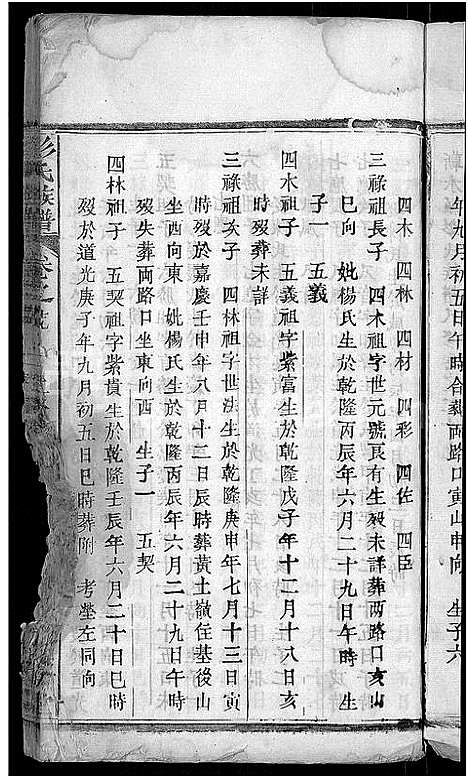 年九月初五日午時合葬兩路口寅山申向 生子六
四木 四林 四材 四彩 四佐 四臣
三祿祖長子 四木祖字世元號艮有生殁未詳葬兩路口亥山
巳向 妣楊氏生於乾隆丙辰年六月二十九日午時 生
子一 五義
四木祖子 五義祖字紫富生於乾隆戊子年十二月十八日亥
時殁葬未詳
三祿祖次子 四林祖字世法生於乾隆庚申年七月十三日寅
時殁於嘉慶壬申年八月十三日辰時葬黃土嶺住基後山
坐西向東 妣楊氏生於乾隆丙辰年六月二十九日午時
殁失葬兩路口坐東向西 生子一 五契
四林祖子 五契祖字紫貴生於乾隆壬辰年六月二十日巳時
殁於道光庚子年九月初五日巳時葬附 考塋左同向
彭氏族譜 卷之